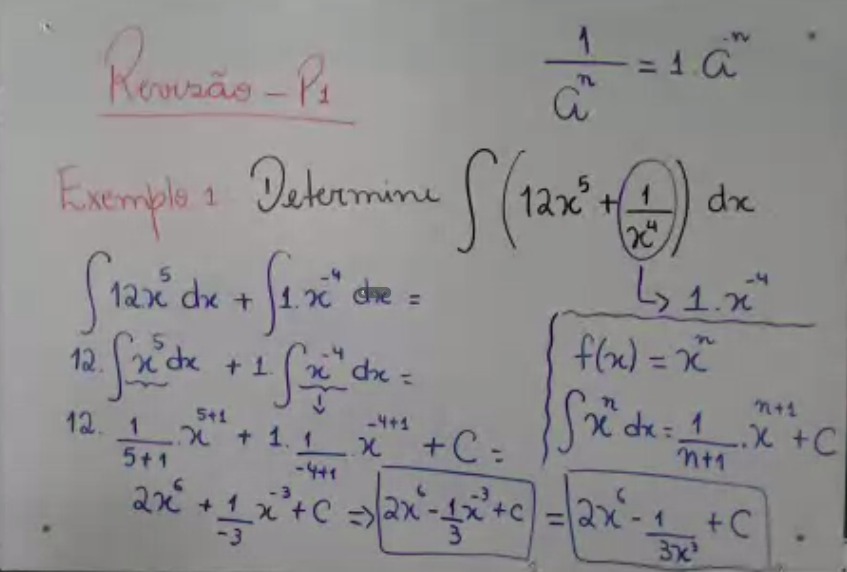 Revisão - P1
1/a^n = 1.a^n
Exemplo 1 Determine ∫(12x^5 + 1/x^4) dx
↳ 1.x^-4
∫12x^5 dx + ∫1.x^-4 dx =
12.∫x^5 dx + 1.∫x^-4 dx =
12. 1/(5+1) .x^(5+1) + 1. 1/(-4+1) .x^(-4+1) + C =
2x^6 + 1/-3 x^-3 + C => 2x^6 - 1/3 x^-3 + C = 2x^6 - 1/(3x^3) + C
f(x) = x^n
∫x^n dx = 1/(n+1) .x^(n+1) + C